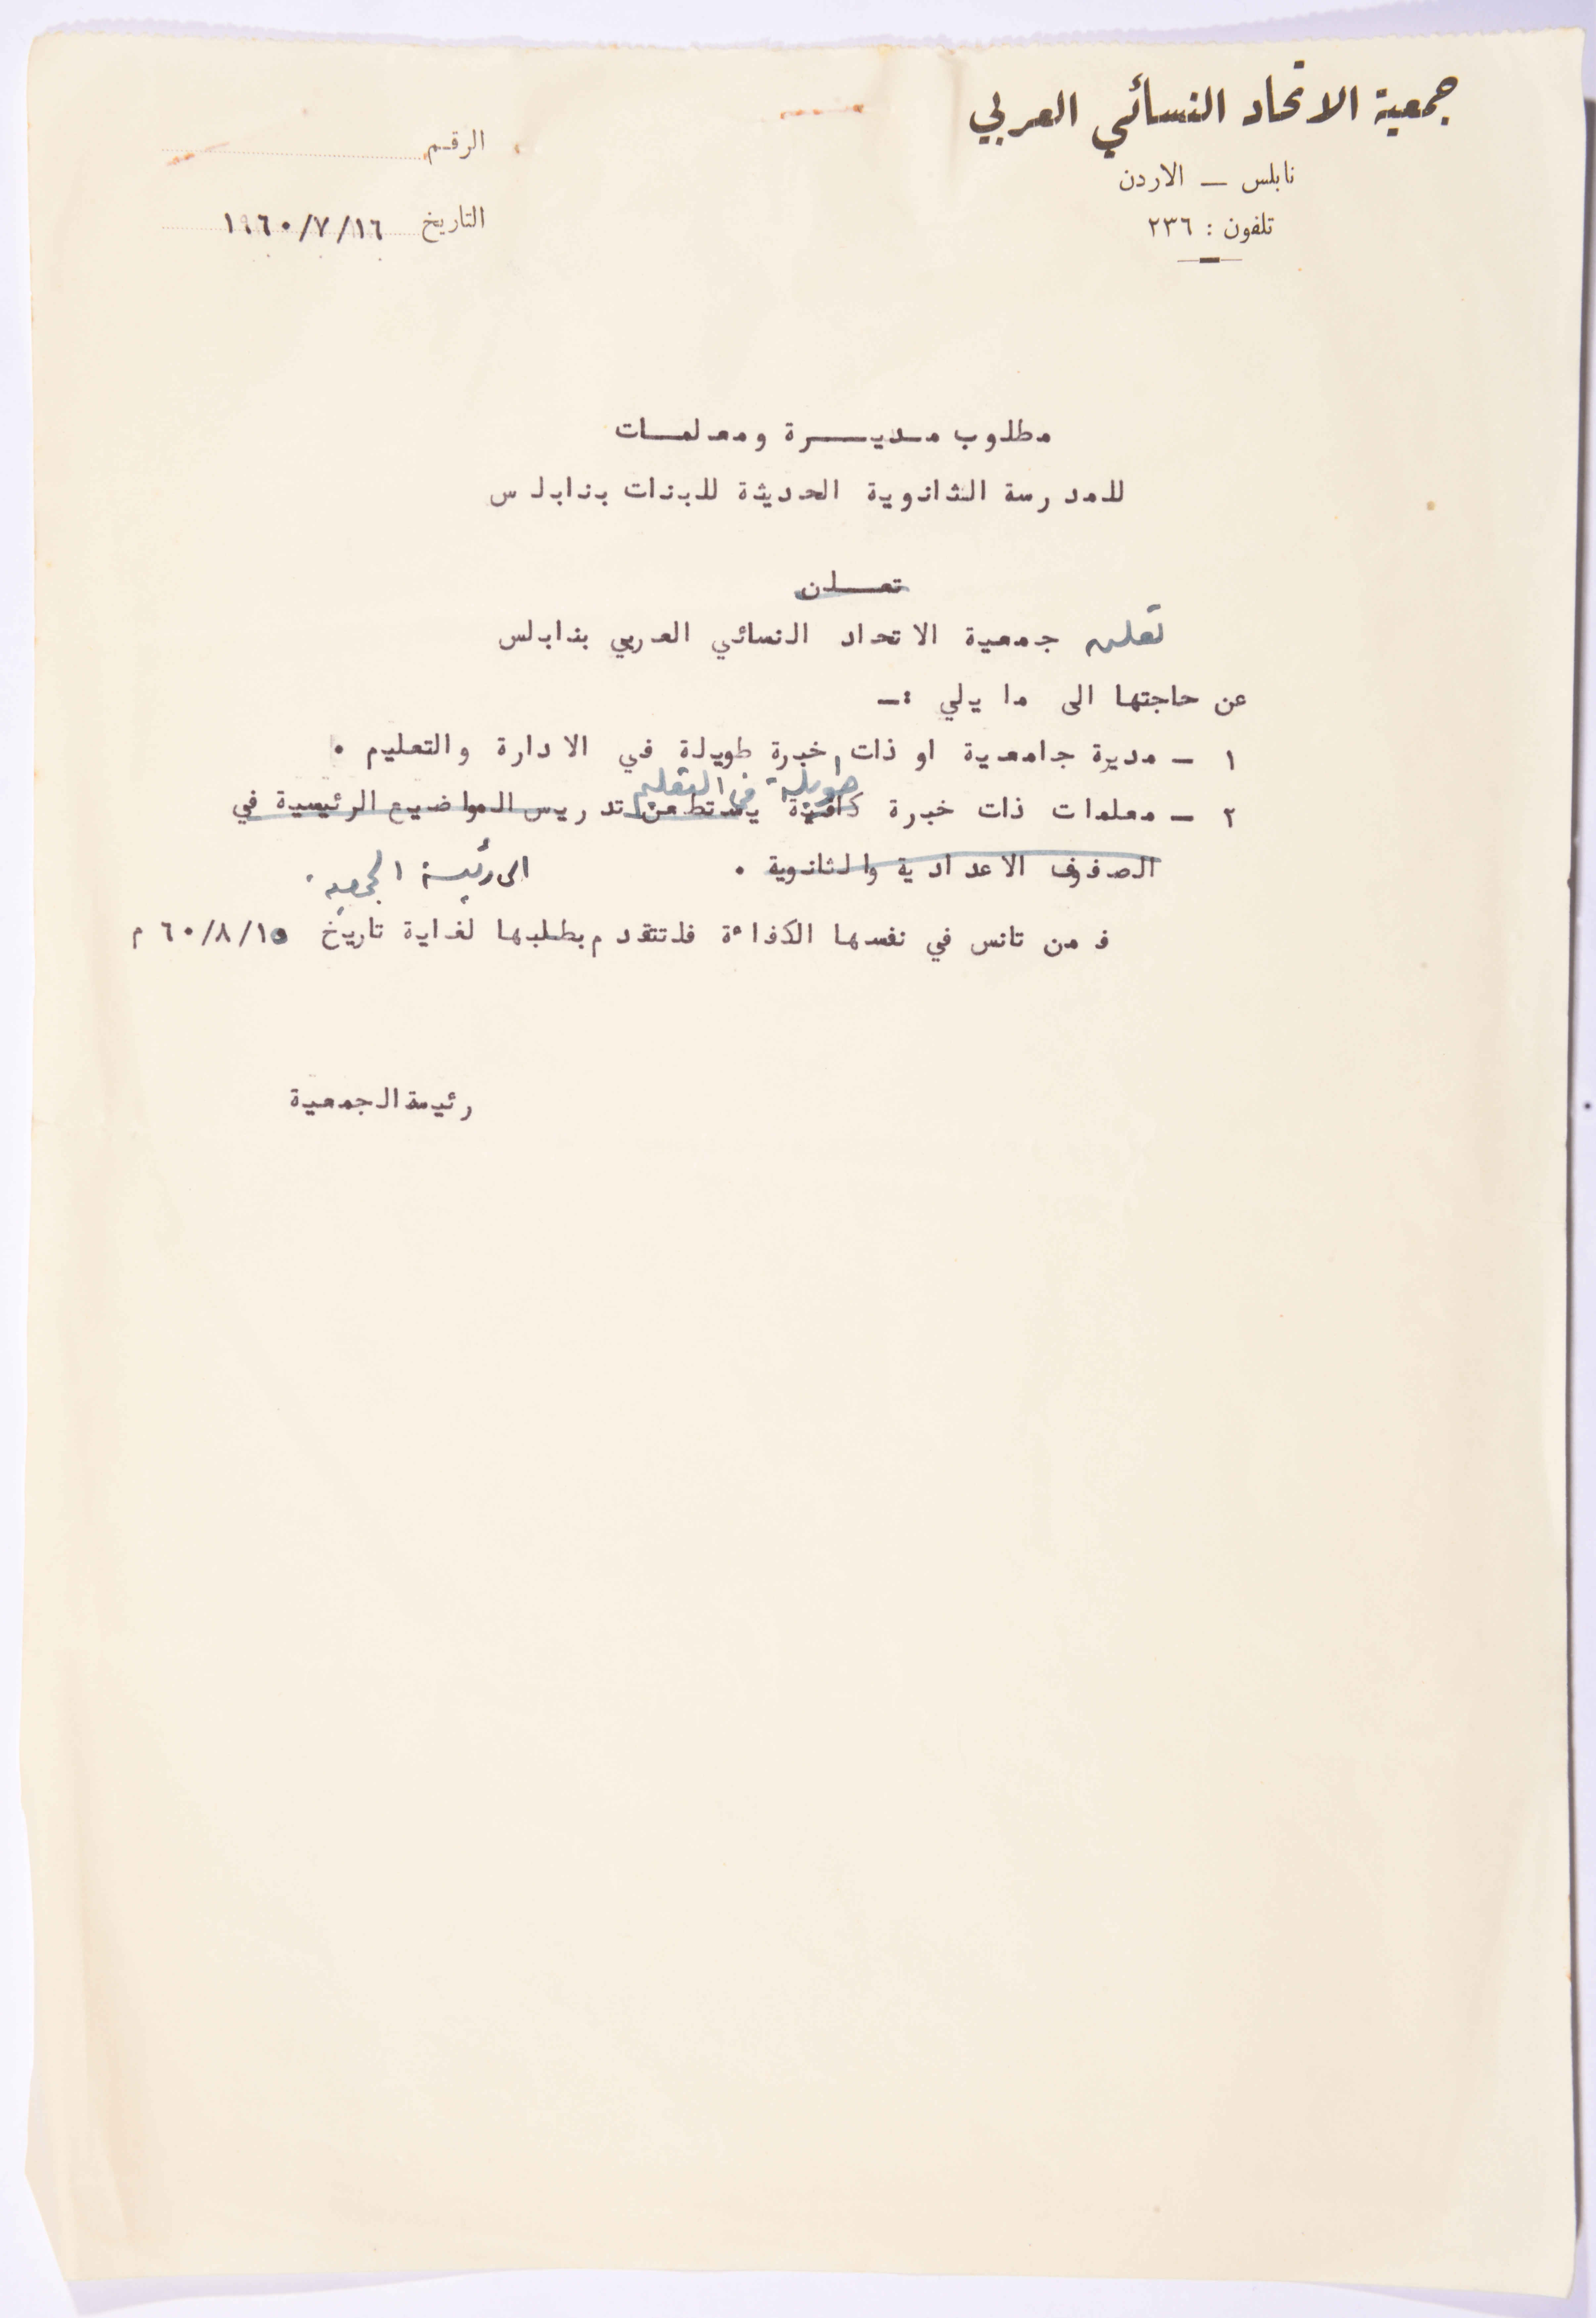 جمعية الاتحاد النسائي العربي
نابلس — الاردن
تلفون : ٢٣٦
الرقم
التاريخ ١٩٦٠/٧/١٦
مطلوب مديـــرة ومعلمـات
للمدرسة الثانوية الحديثة للبنات بنابلس
تعـلن
تعلن جمعية الاتحاد النسائي العربي بنابلس
عن حاجتها الى ما يلي :ـ
١ ـ مديرة جامعية او ذات خبرة طويلة في الادارة والتعليم .
طويلة في التعليم
٢ ـ معلمات ذات خبرة كافية يستطعن تدريس المواضيع الرئيسية في
الصفوف الاعدادية والثانوية .
الى رئيسة الجمعية .
فمن تانس في نفسها الكفاءة فلتتقدم بطلبها لغاية تاريخ ٦٠/٨/١٥ م
رئيسة الجمعية